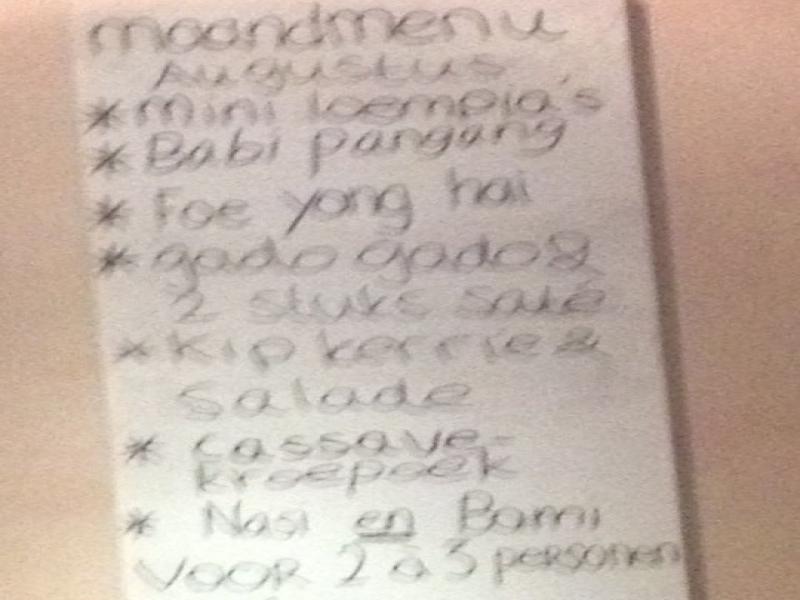 maandmenu
Augustus
* Mini loempia's
* Babi pangang
* Foe yong hai
* gado gado &
2 stuks saté
* Kip kerrie &
Salade
* cassave-
kroepoek
* Nasi en Bami
VOOR 2 à 3 personen